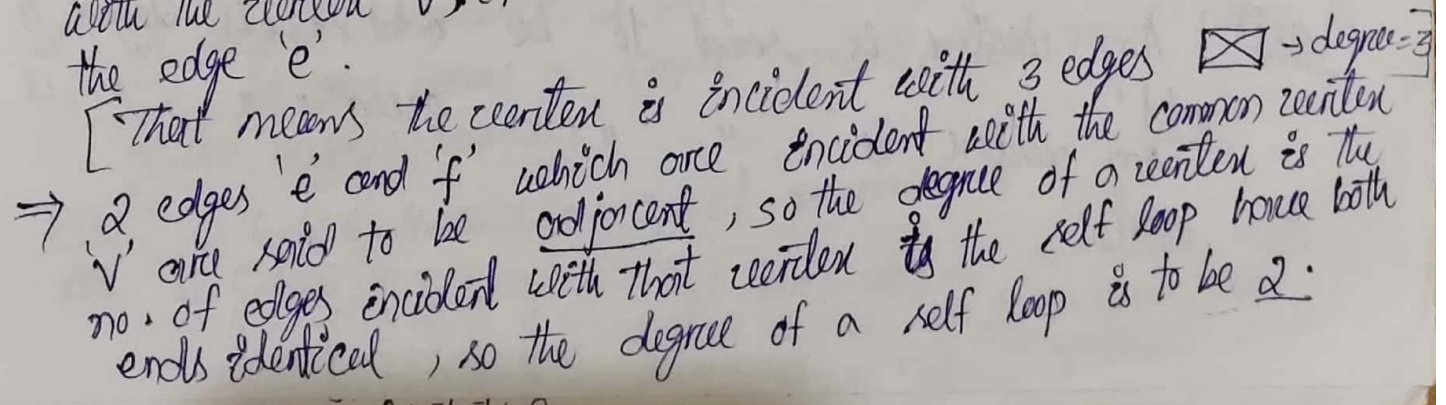 with the
the edge 'e'.
[That means the vertex is incident with 3 edges → degree = 3]
⇒ 2 edges 'e' and 'f' which are incident with the common vertex
'v' are said to be adjacent, so the degree of a vertex is the
no. of edges incident with that vertex is the self loop have both
ends identical, so the degree of a self loop is to be 2.